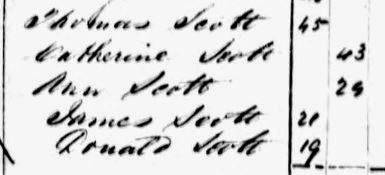 Thomas Scott 45
Catherine Scott 43
Ann Scott 24
James Scott 21
Donald Scott 19